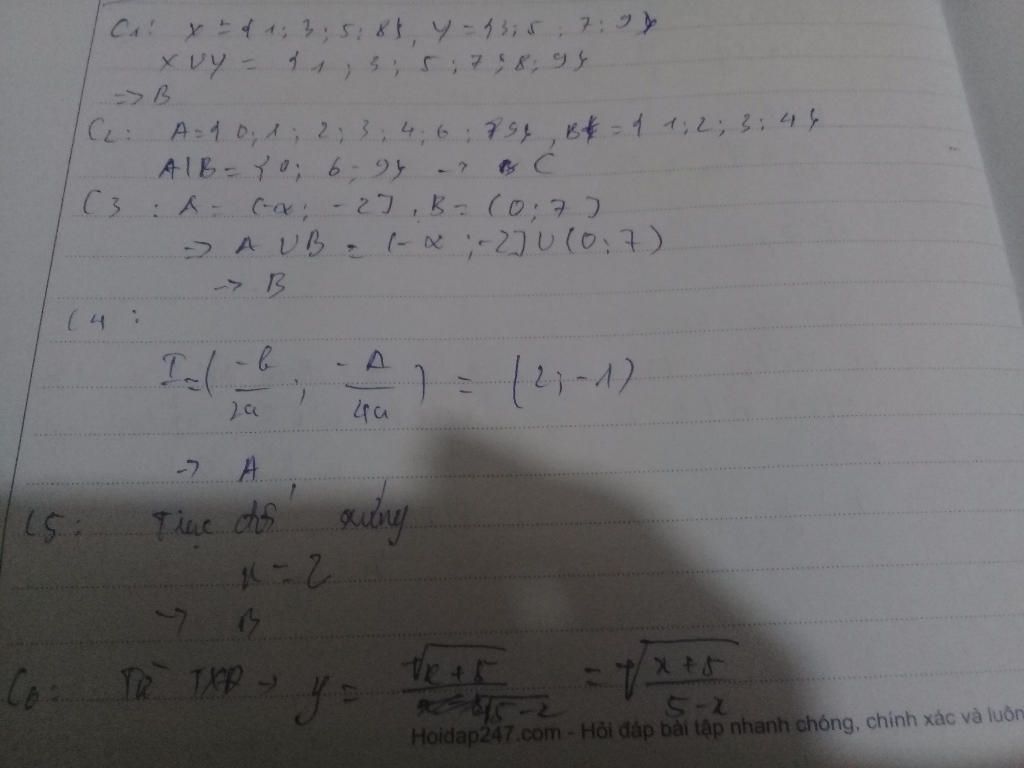 C1: X = {1; 3; 5; 8}, Y = {3; 5; 7; 9}
X∪Y = {1; 3; 5; 7; 8; 9}
=> B
C2: A = {0; 1; 2; 3; 4; 6; 9}, B = {1; 2; 3; 4}
A\B = {0; 6; 9} -> C
C3: A = (-∞; -2], B = (0; 7]
=> A ∪ B = (-∞; -2] ∪ (0; 7)
-> B
C4:
I = (-b/2a; -Δ/4a) = (2; -1)
-> A
C5: Trục đối xứng
x = 2
-> B
C6: Từ TXĐ -> y = √(x+5)/√(5-x) = √((x+5)/(5-x))
Hoidap247.com - Hỏi đáp bài tập nhanh chóng, chính xác và luôn